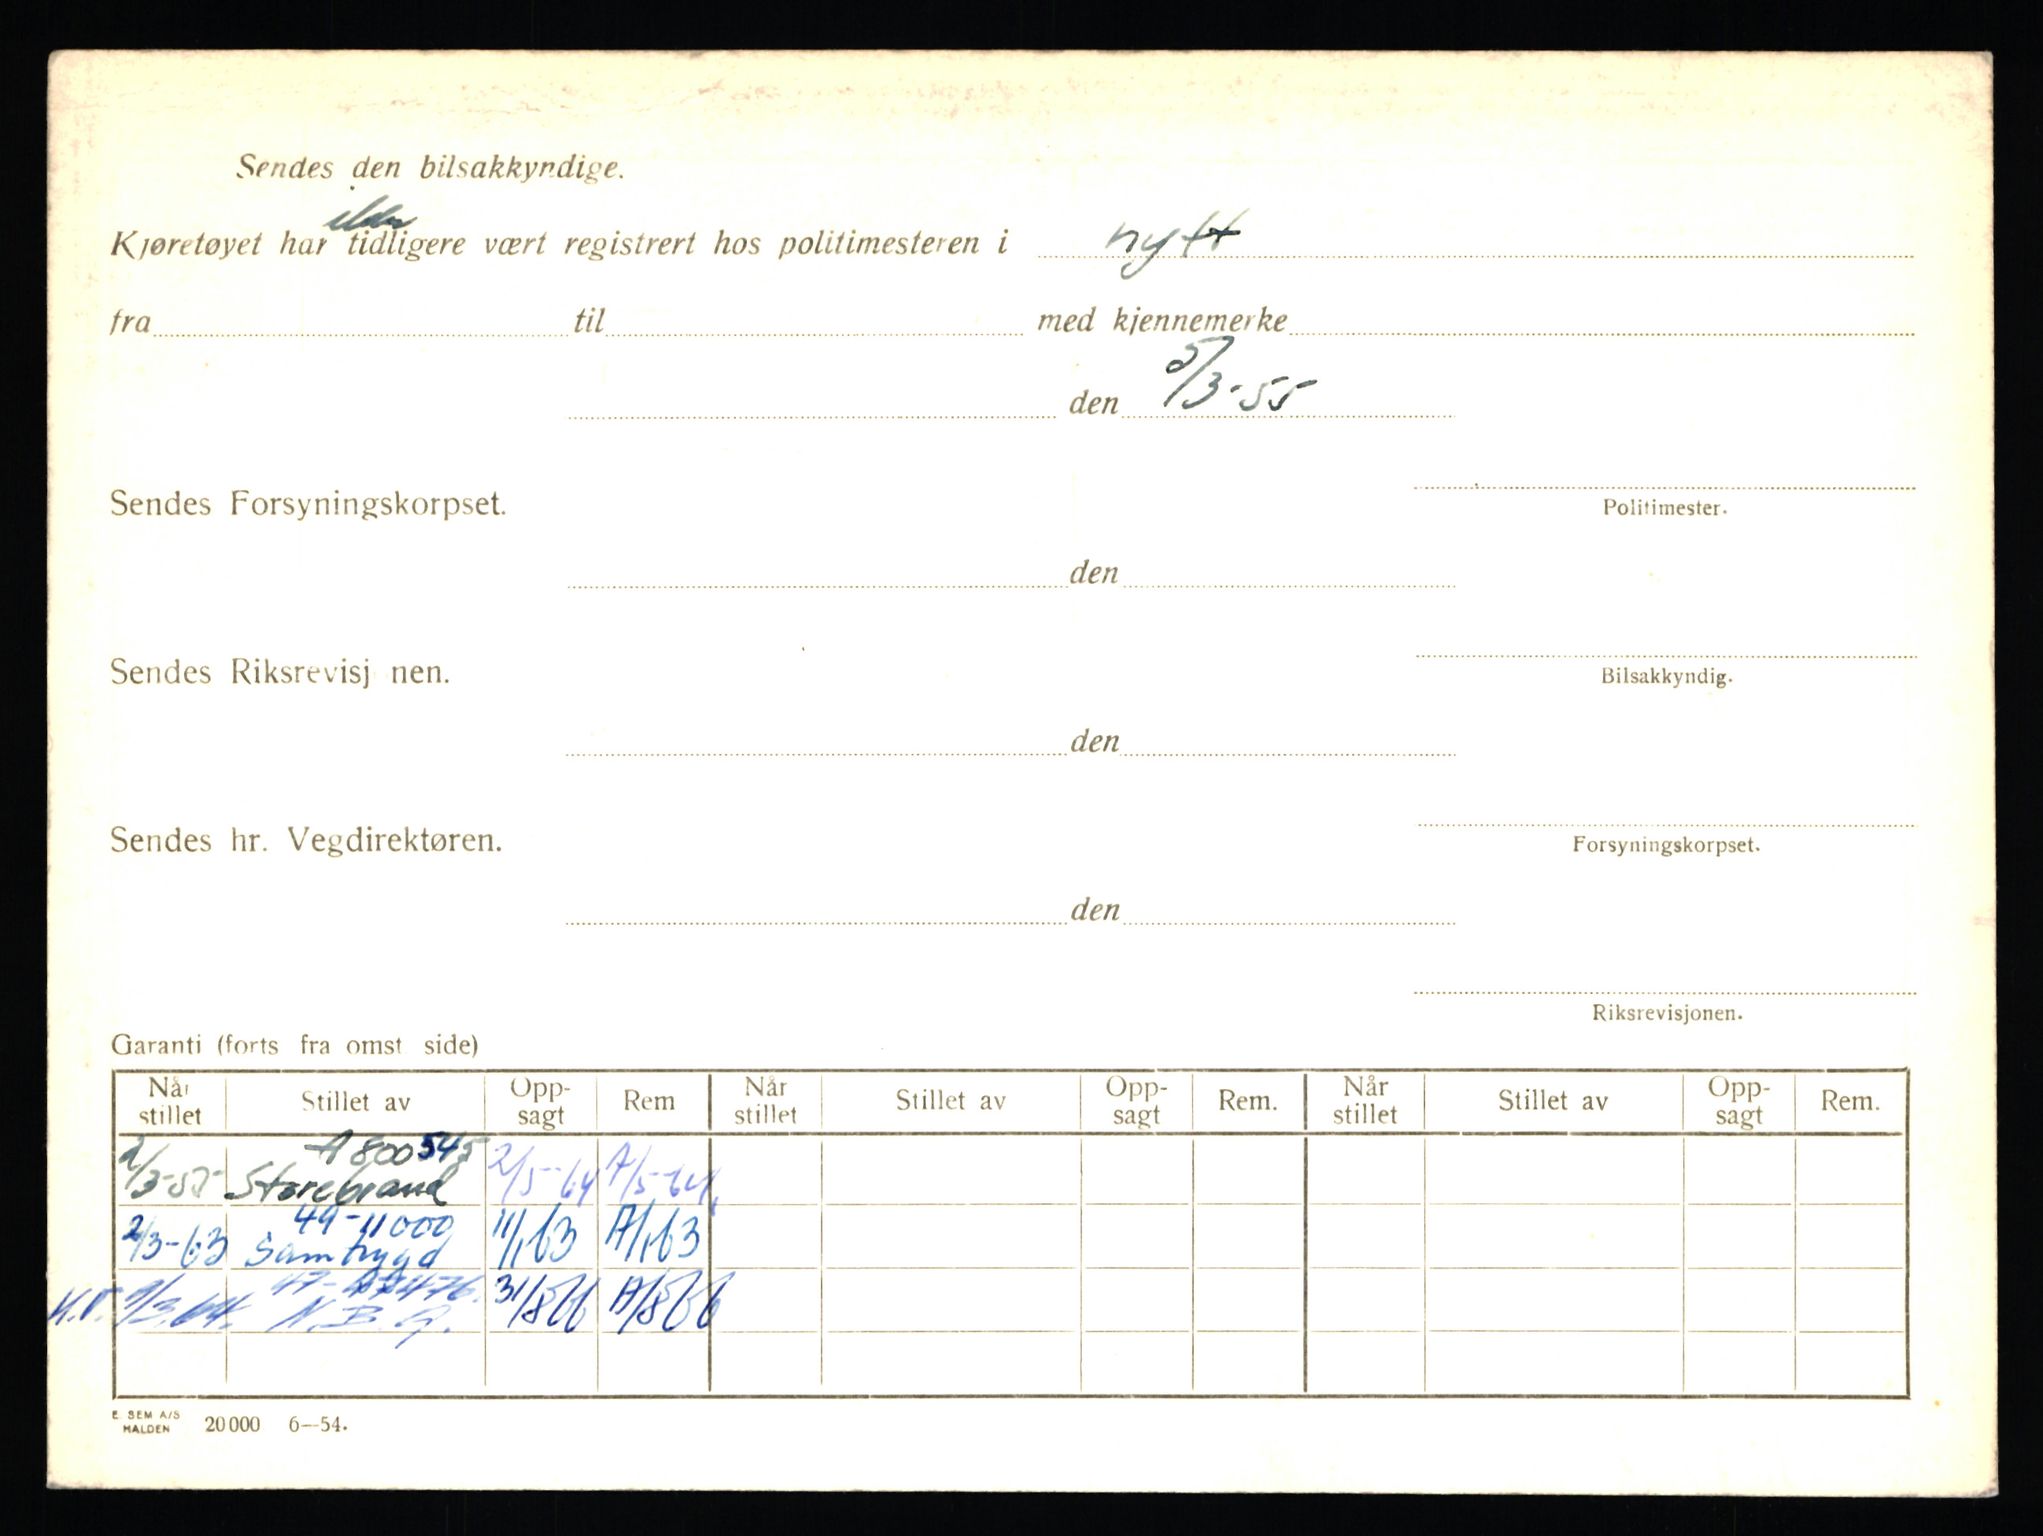 Sendes den bilsakkyndige.
ikke
Kjøretøyet har tidligere vært registrert hos politimesteren i nytt
fra til med kjennemerke
den 5/3-55
Sendes Forsyningskorpset.
Politimester.
den
Sendes Riksrevisj nen.
Bilsakkyndig.
den
Sendes hr. Vegdirektøren.
Forsyningskorpset.
den
Riksrevisjonen.
Garanti (forts fra omst side)
Når stillet Stillet av Opp-sagt Rem Når stillet Stillet av Opp-sagt Rem. Når stillet Stillet av Opp-sagt Rem.
A 800545
2/3-55 Storebrand 2/5-64 A/5-64
49-11000
2/3-63 Samtrygd 11/1 63 A/1 63
K.V. 9/3.64. N.B.G. 31/8 66 A/8 66
E. SEM A/S
HALDEN 20000 6—54.